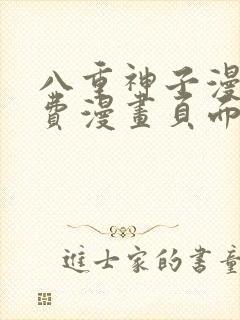 八重神子漫
費漫畫頁面
進士家的書童